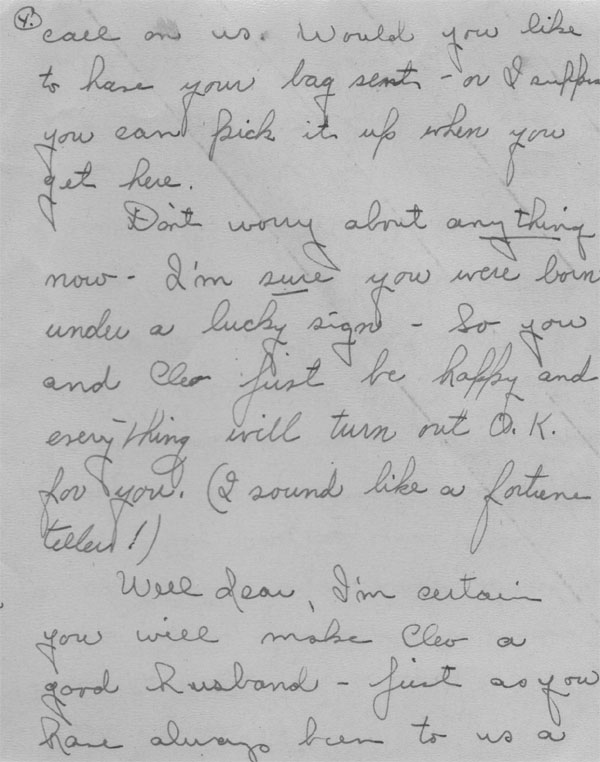 4.
call on us. Would you like
to have your bag sent - or I suppose
you can pick it up when you
get here.
Don't worry about anything
now - I'm sure you were born
under a lucky sign - So you
and Cleo just be happy and
everything will turn out O.K.
for you. (I sound like a fortune
teller!)
Well dear, I'm certain
you will make Cleo a
good husband - just as you
have always been to us a